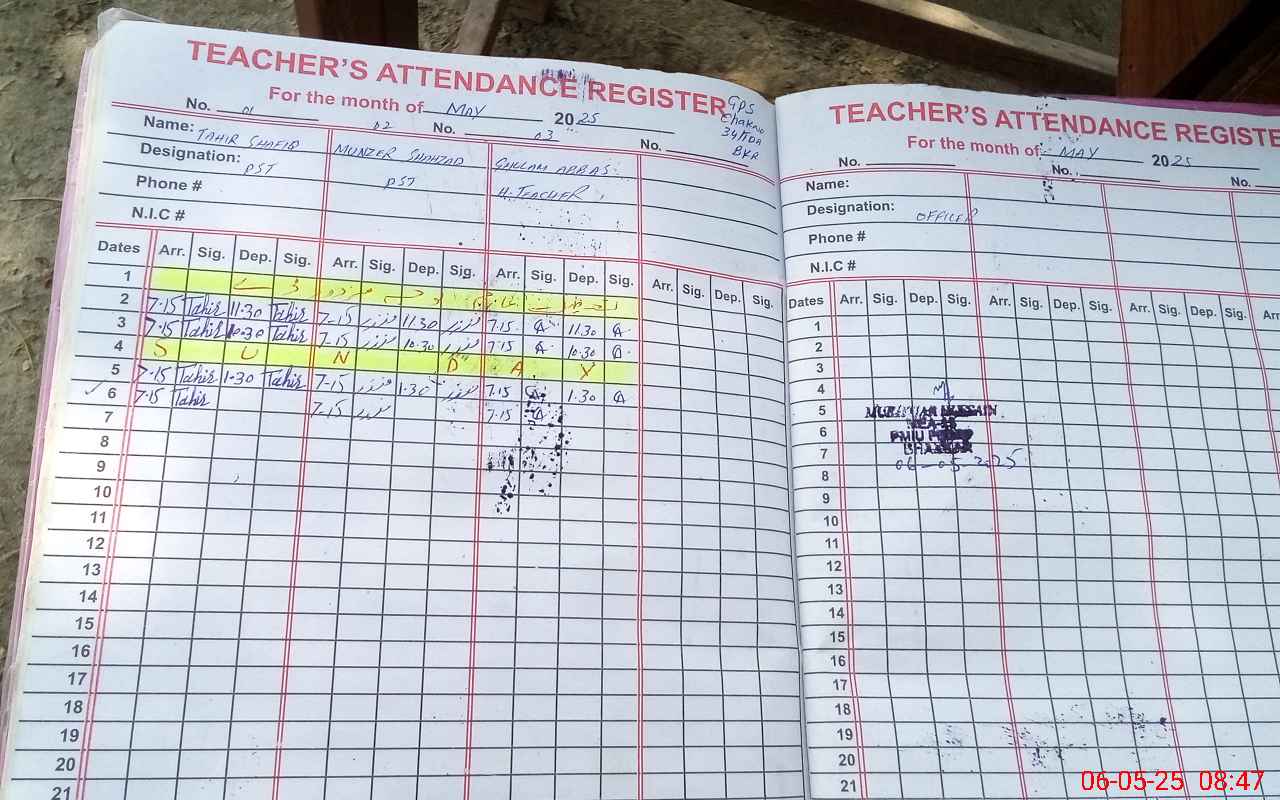 TEACHER'S ATTENDANCE REGISTER
GPS
Chak No
34/TDA
BKR
For the month of MAY 2025
No. 01 02 No. 03 No.
Name: TAHIR SHAFIQ MUNZER SHAHZAD GHULAM ABBAS
Designation: PST PST H.TEACHER
Phone #
N.I.C #
Dates Arr. Sig. Dep. Sig. Arr. Sig. Dep. Sig. Arr. Sig. Dep. Sig. Arr. Sig. Dep. Sig.
1
2 7-15 Tahir 11.30 Tahir 7-15 منزر 11.30 منزر 7.15 11.30
3 7-15 Tahir 10.30 Tahir 7-15 منزر 10.30 منزر 7.15 10.30
4 S U N D A Y
5 7.15 Tahir 1.30 Tahir 7-15 منزر 1.30 منزر 7.15 1.30
6 7.15 Tahir 7-15 منزر 7.15
7
8
9
10
11
12
13
14
15
16
17
18
19
20
21
TEACHER'S ATTENDANCE REGISTE
For the month of MAY 2025
No. No. No.
Name:
Designation: OFFICER
Phone #
N.I.C #
Dates Arr. Sig. Dep. Sig. Arr. Sig. Dep. Sig. Arr. Sig. Dep. Sig. Arr
1
2
3
4
5
6
7
06-05-2025
8
9
10
11
12
13
14
15
16
17
18
19
20
21
06-05-25 08:47